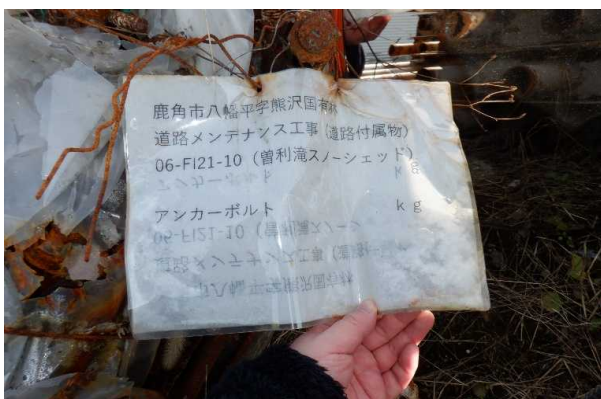 鹿角市八幡平字熊沢国有林
道路メンテナンス工事(道路付属物)
06-FI21-10(曽利滝スノーシェッド)
kg
アンカーボルト kg